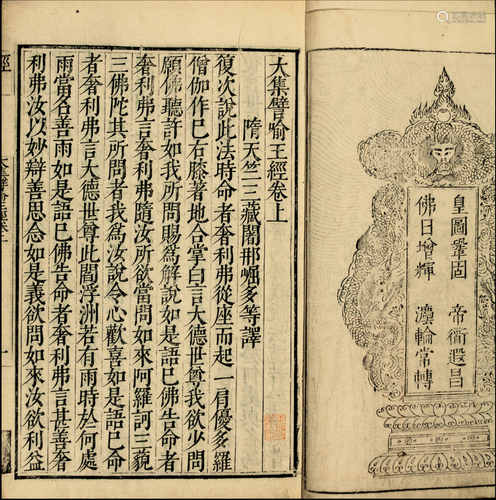 皇圖鞏固　帝衜遐昌
佛日增輝　灋輪常轉
大集譬喻王經卷上
隋天竺三藏闍那崛多等譯
復次說此法時命者奢利弗從座而起一肩優多羅
僧伽作已右膝著地合掌白言大德世尊我欲少問
願佛聽許如我所問賜爲解說如是語已佛告命者
奢利弗言奢利弗隨汝所欲當問如來阿羅訶三藐
三佛陀其所問者我爲汝說令心歡喜如是語已命
者奢利弗言大德世尊此閻浮洲若有雨時於何處
雨當名善雨如是語已佛告命者奢利弗言甚善奢
利弗汝以妙辯善思念如是義欲問如來汝欲利益
經